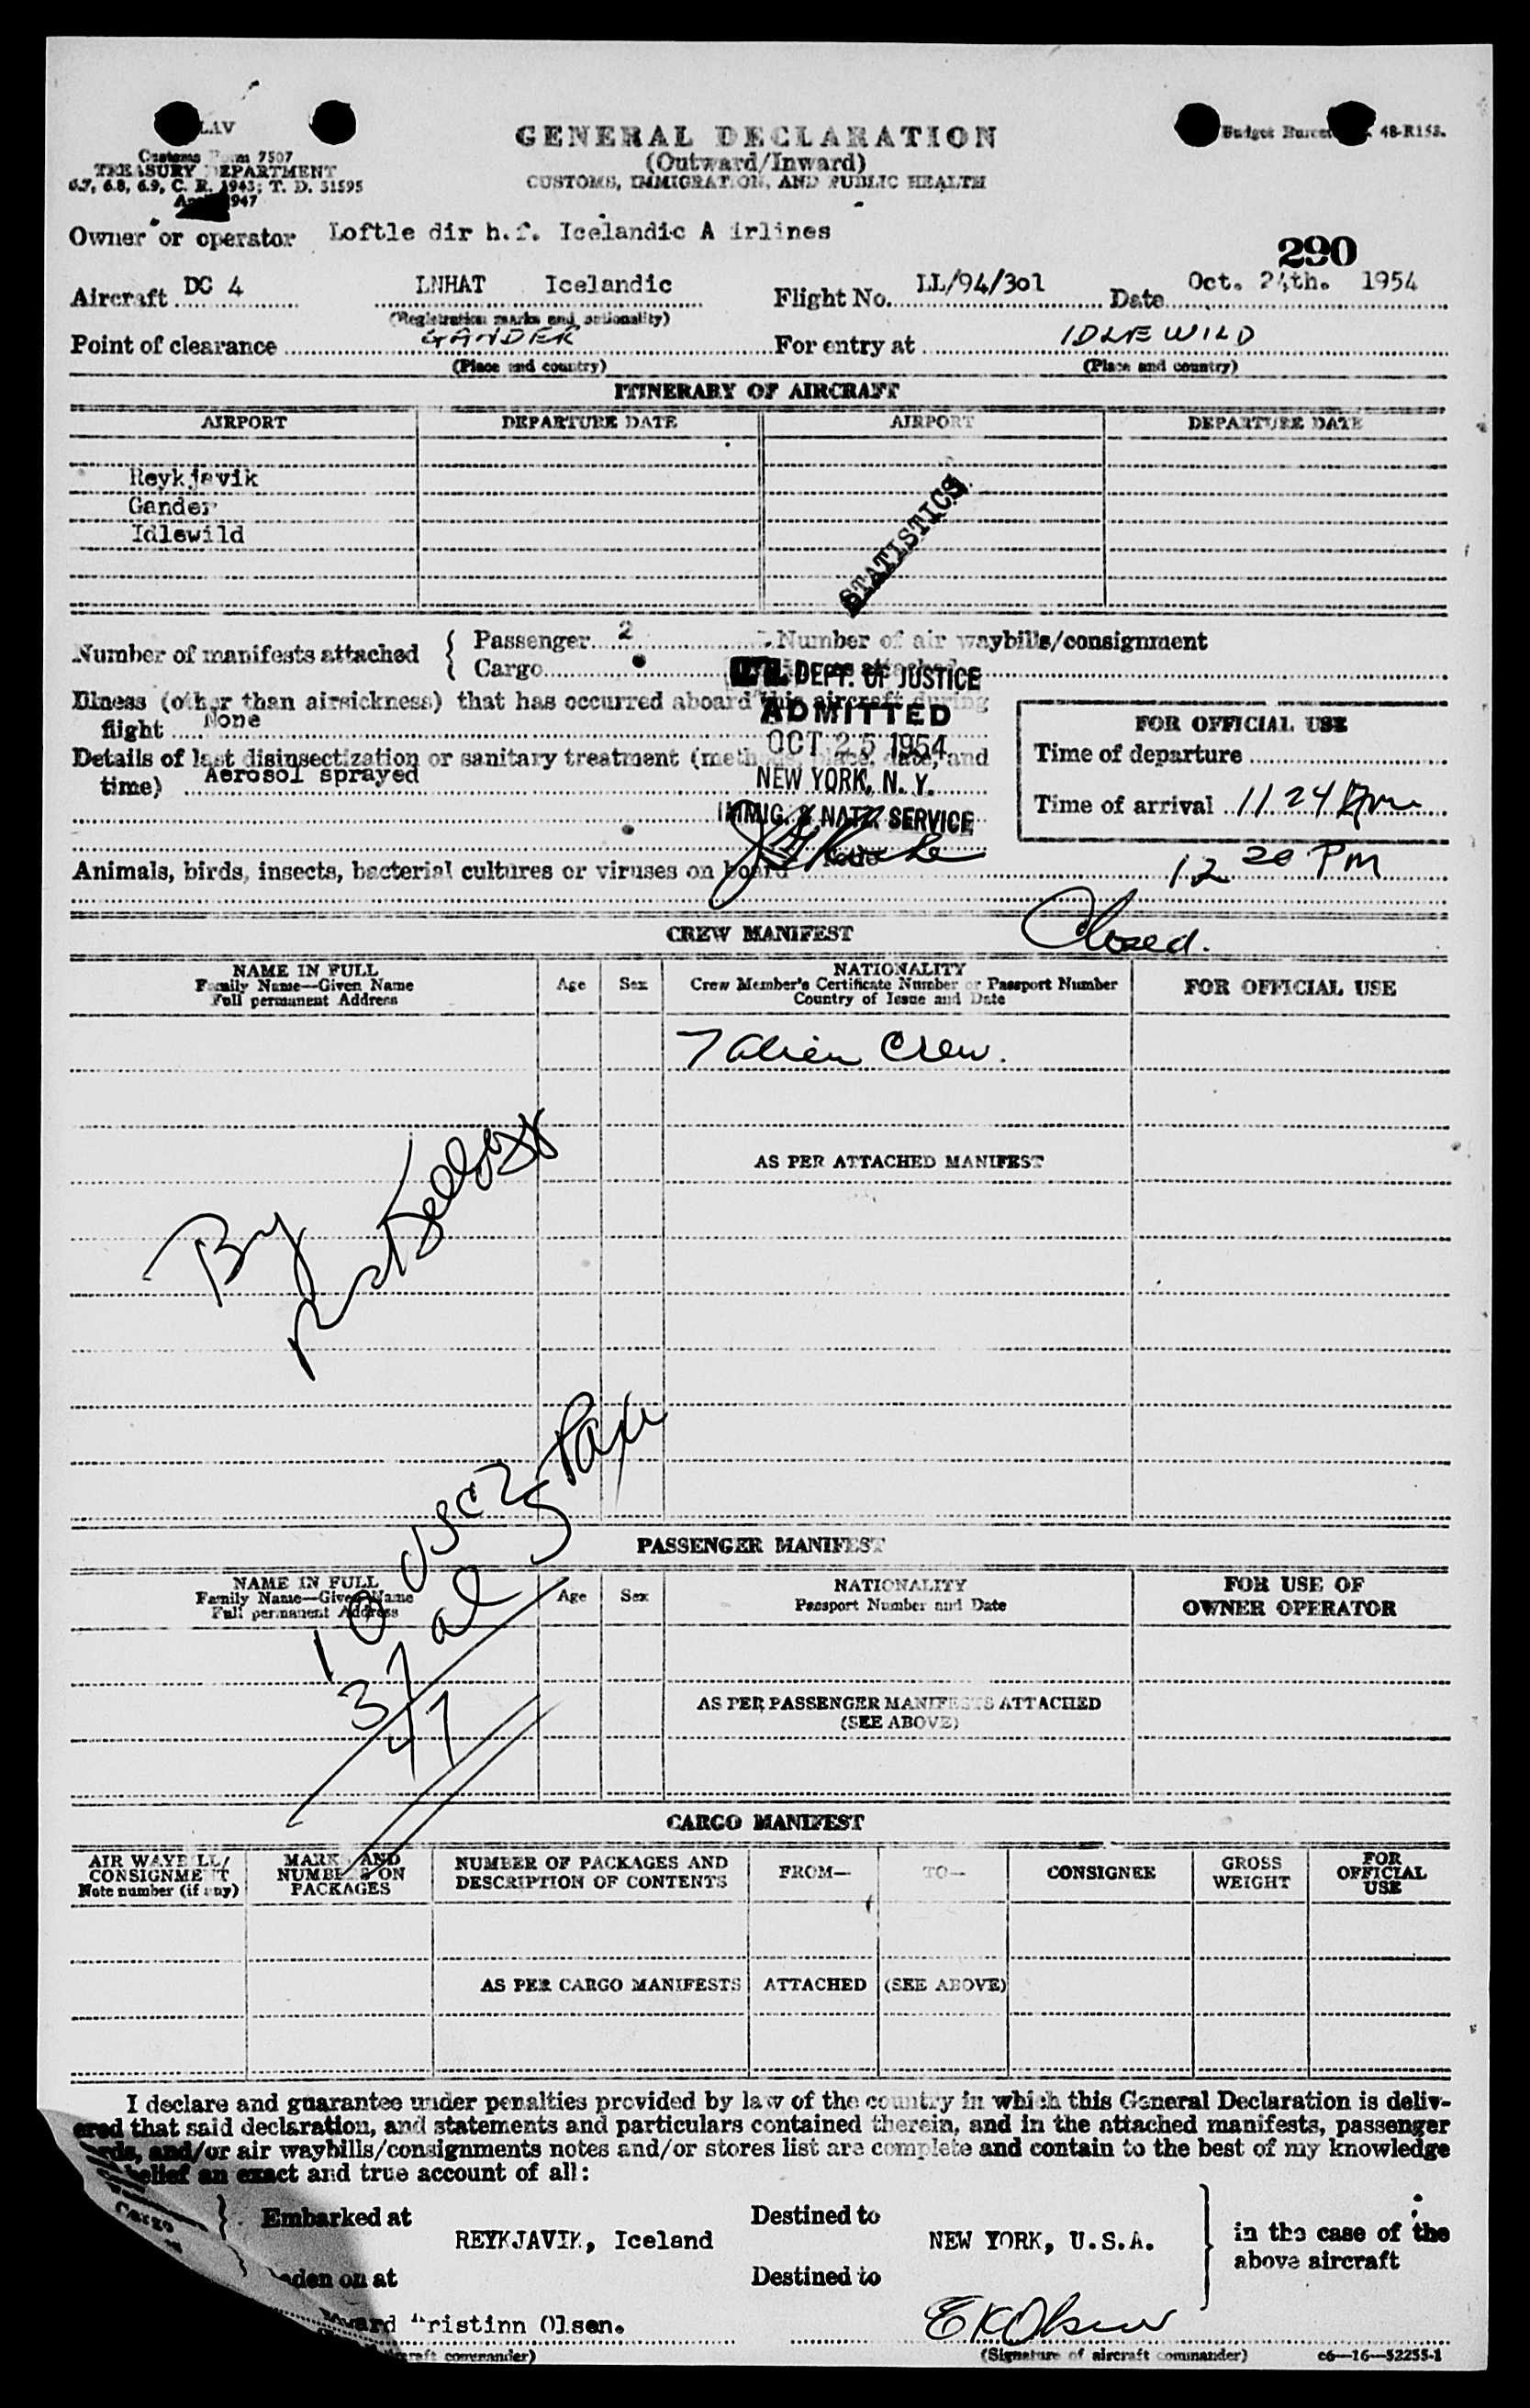 LAV
Customs Form 7507
TREASURY DEPARTMENT
6.7, 6.8, 6.9, C. R. 1943; T. D. 51595
1947
GENERAL DECLARATION
(Outward/Inward)
CUSTOMS, IMMIGRATION, AND PUBLIC HEALTH
Budget Bureau 48-R158.
290
Owner or operator Loftle dir h.f. Icelandic A irlines
Aircraft DC 4 LNHAT Icelandic Flight No. LL/94/301 Date Oct. 24th. 1954
(Registration marks and nationality)
Point of clearance GANDER For entry at IDLEWILD
(Place and country) (Place and country)
ITINERARY OF AIRCRAFT
AIRPORT DEPARTURE DATE AIRPORT DEPARTURE DATE
Reykjavik
Gander
Idlewild
STATISTICS
Number of manifests attached { Passenger 2 Number of air waybills/consignment
Cargo
U.S. DEPT. OF JUSTICE
ADMITTED
OCT 25 1954
NEW YORK, N. Y.
IMMIG. & NATZ. SERVICE
Illness (other than airsickness) that has occurred aboard this aircraft during
flight None
Details of last disinsectization or sanitary treatment (method, place, date, and
time) Aerosol sprayed
FOR OFFICIAL USE
Time of departure
Time of arrival 11 24
12 20 PM
Animals, birds, insects, bacterial cultures or viruses on board
Closed.
CREW MANIFEST
NAME IN FULL
Family Name—Given Name
Full permanent Address
Age Sex
NATIONALITY
Crew Member's Certificate Number or Passport Number
Country of Issue and Date
FOR OFFICIAL USE
7 alien Crew.
AS PER ATTACHED MANIFEST
By
10 USCZ
37 al
47
Pax
PASSENGER MANIFEST
NAME IN FULL
Family Name—Given Name
Full permanent Address
Age Sex
NATIONALITY
Passport Number and Date
FOR USE OF
OWNER OPERATOR
AS PER PASSENGER MANIFESTS ATTACHED
(SEE ABOVE)
CARGO MANIFEST
AIR WAYBILL/
CONSIGNMENT
Note number (if any)
MARKS AND
NUMBERS ON
PACKAGES
NUMBER OF PACKAGES AND
DESCRIPTION OF CONTENTS
FROM— TO— CONSIGNEE
GROSS
WEIGHT
FOR
OFFICIAL
USE
AS PER CARGO MANIFESTS ATTACHED (SEE ABOVE)
I declare and guarantee under penalties provided by law of the country in which this General Declaration is deliv-
ered that said declaration, and statements and particulars contained therein, and in the attached manifests, passenger
and/or air waybills/consignments notes and/or stores list are complete and contain to the best of my knowledge
belief an exact and true account of all:
Embarked at REYKJAVIK, Iceland Destined to NEW YORK, U.S.A. in the case of the
above aircraft
Cargo
on at Destined to
ristinn Olsen. E K Olsen
commander) (Signature of aircraft commander) c6—16—52255-1